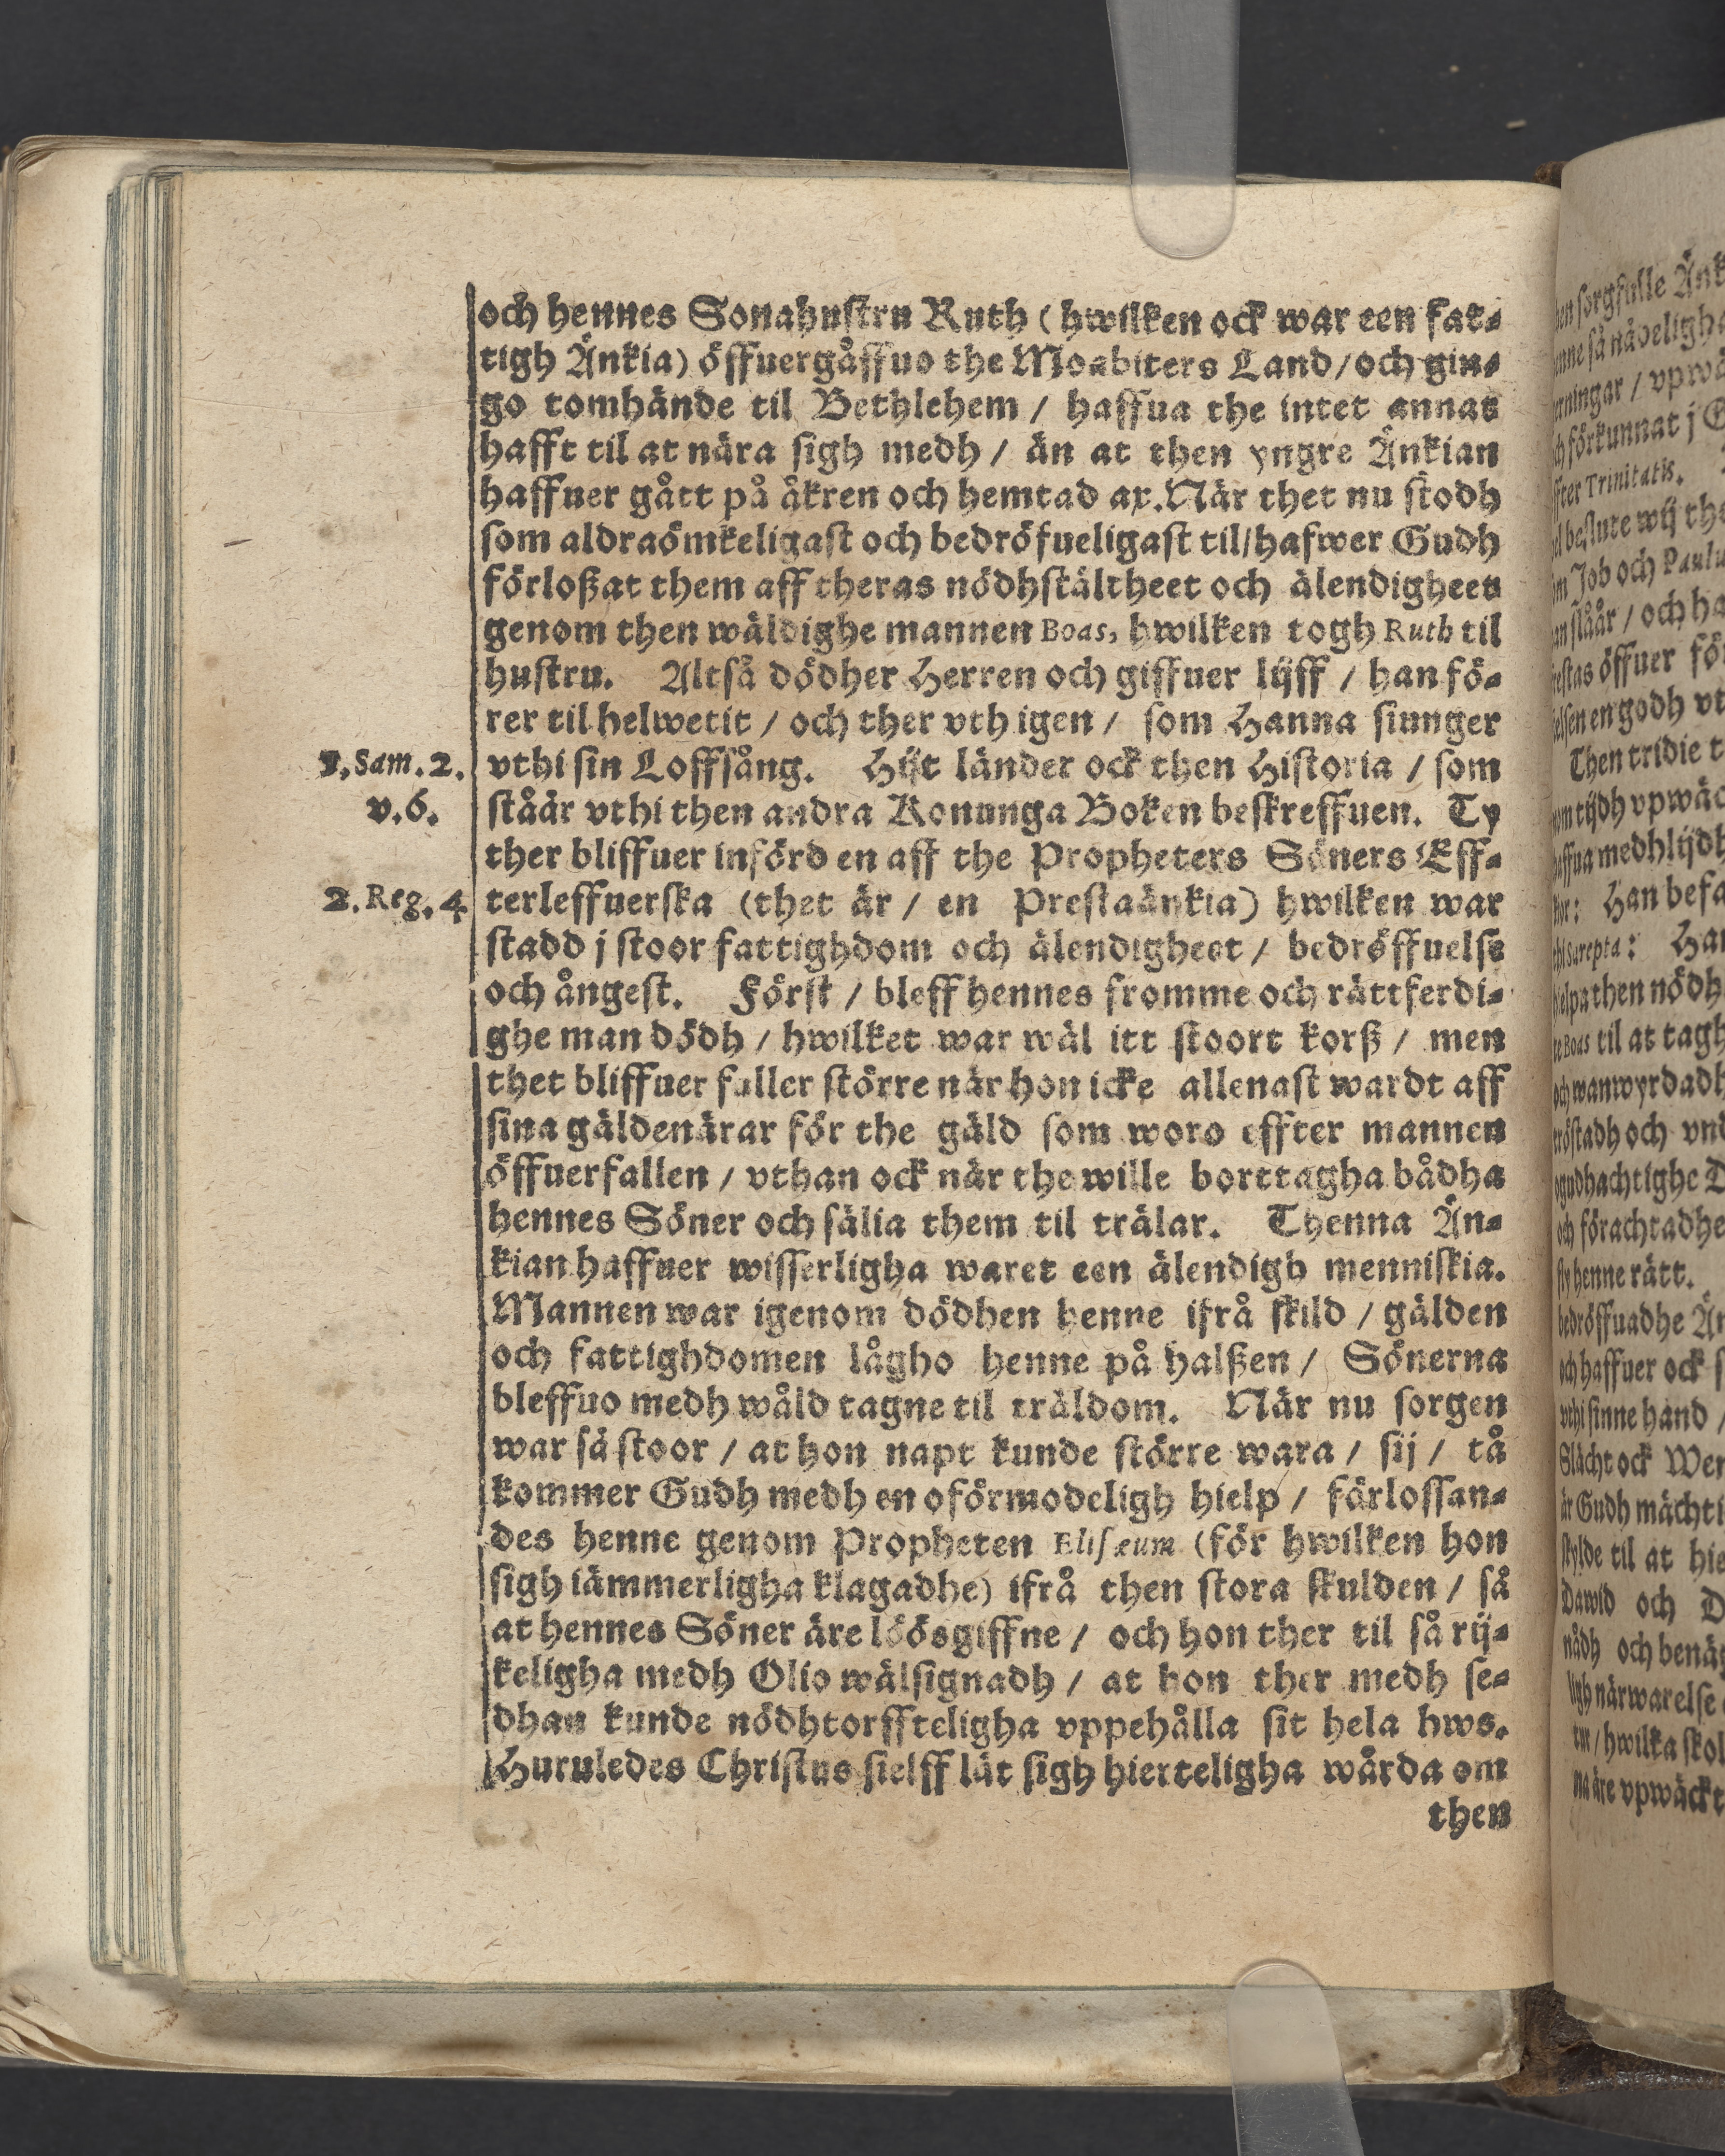 och hennes Sonahustru Ruth (hwilken ock war een fat-
tigh Änkia) öffuergåffuo the Moabiters Land/och gin-
go tomhände til Bethlehem / haffua the intet annat
hafft til at nära sigh medh / än at then yngre Änkian
haffuer gått på åkren och hemtad ax. När thet nu stodh
som aldraömkeligast och bedröfueligast til/hafwer Gudh
förloßat them aff theras nödhstältheet och älendigheet
genom then wäldighe mannen Boas, hwilken togh Ruth til
hustru. Altså dödher Herren och giffuer lijff / han fö-
rer til helwetit / och ther vth igen / som Hanna siunger
1. Sam. 2. vthi sin Loffsång. Hijt länder ock then Historia / som
v. 6. ståår vthi then andra Konunga Boken beskreffuen. Ty
ther bliffuer införd en aff the Propheters Söners Eff-
2. Reg. 4 terleffuerska (thet är / en Prestaänkia) hwilken war
stadd j stoor fattighdom och älendigheet / bedröffuelse
och ångest. Först / bleff hennes fromme och rättferdi-
ghe man dödh / hwilket war wäl itt stoort korß / men
thet bliffuer fuller större när hon icke allenast wardt aff
sina gäldenärar för the gäld som woro effter mannen
öffuerfallen / vthan ock när the wille borttagha bådha
hennes Söner och sälia them til trälar. Thenna Än-
kian haffuer wisserligha waret een älendigh menniskia.
Mannen war igenom dödhen henne ifrå skild / gälden
och fattighdomen lågho henne på halßen / Sönerna
bleffuo medh wåld tagne til träldom. När nu sorgen
war så stoor / at hon napt kunde större wara / sij / tå
kommer Gudh medh en oförmodeligh hielp / färlossan-
des henne genom Propheten Elisæum (för hwilken hon
sigh iämmerligha klagadhe) ifrå then stora skulden / så
at hennes Söner äre löösgiffne / och hon ther til så rij-
keligha medh Olio wälsignadh / at hon ther medh se-
dhan kunde nödhtorffteligha vppehålla sit hela hws.
Huruledes Christus sielff lät sigh hierteligha wårda om
then